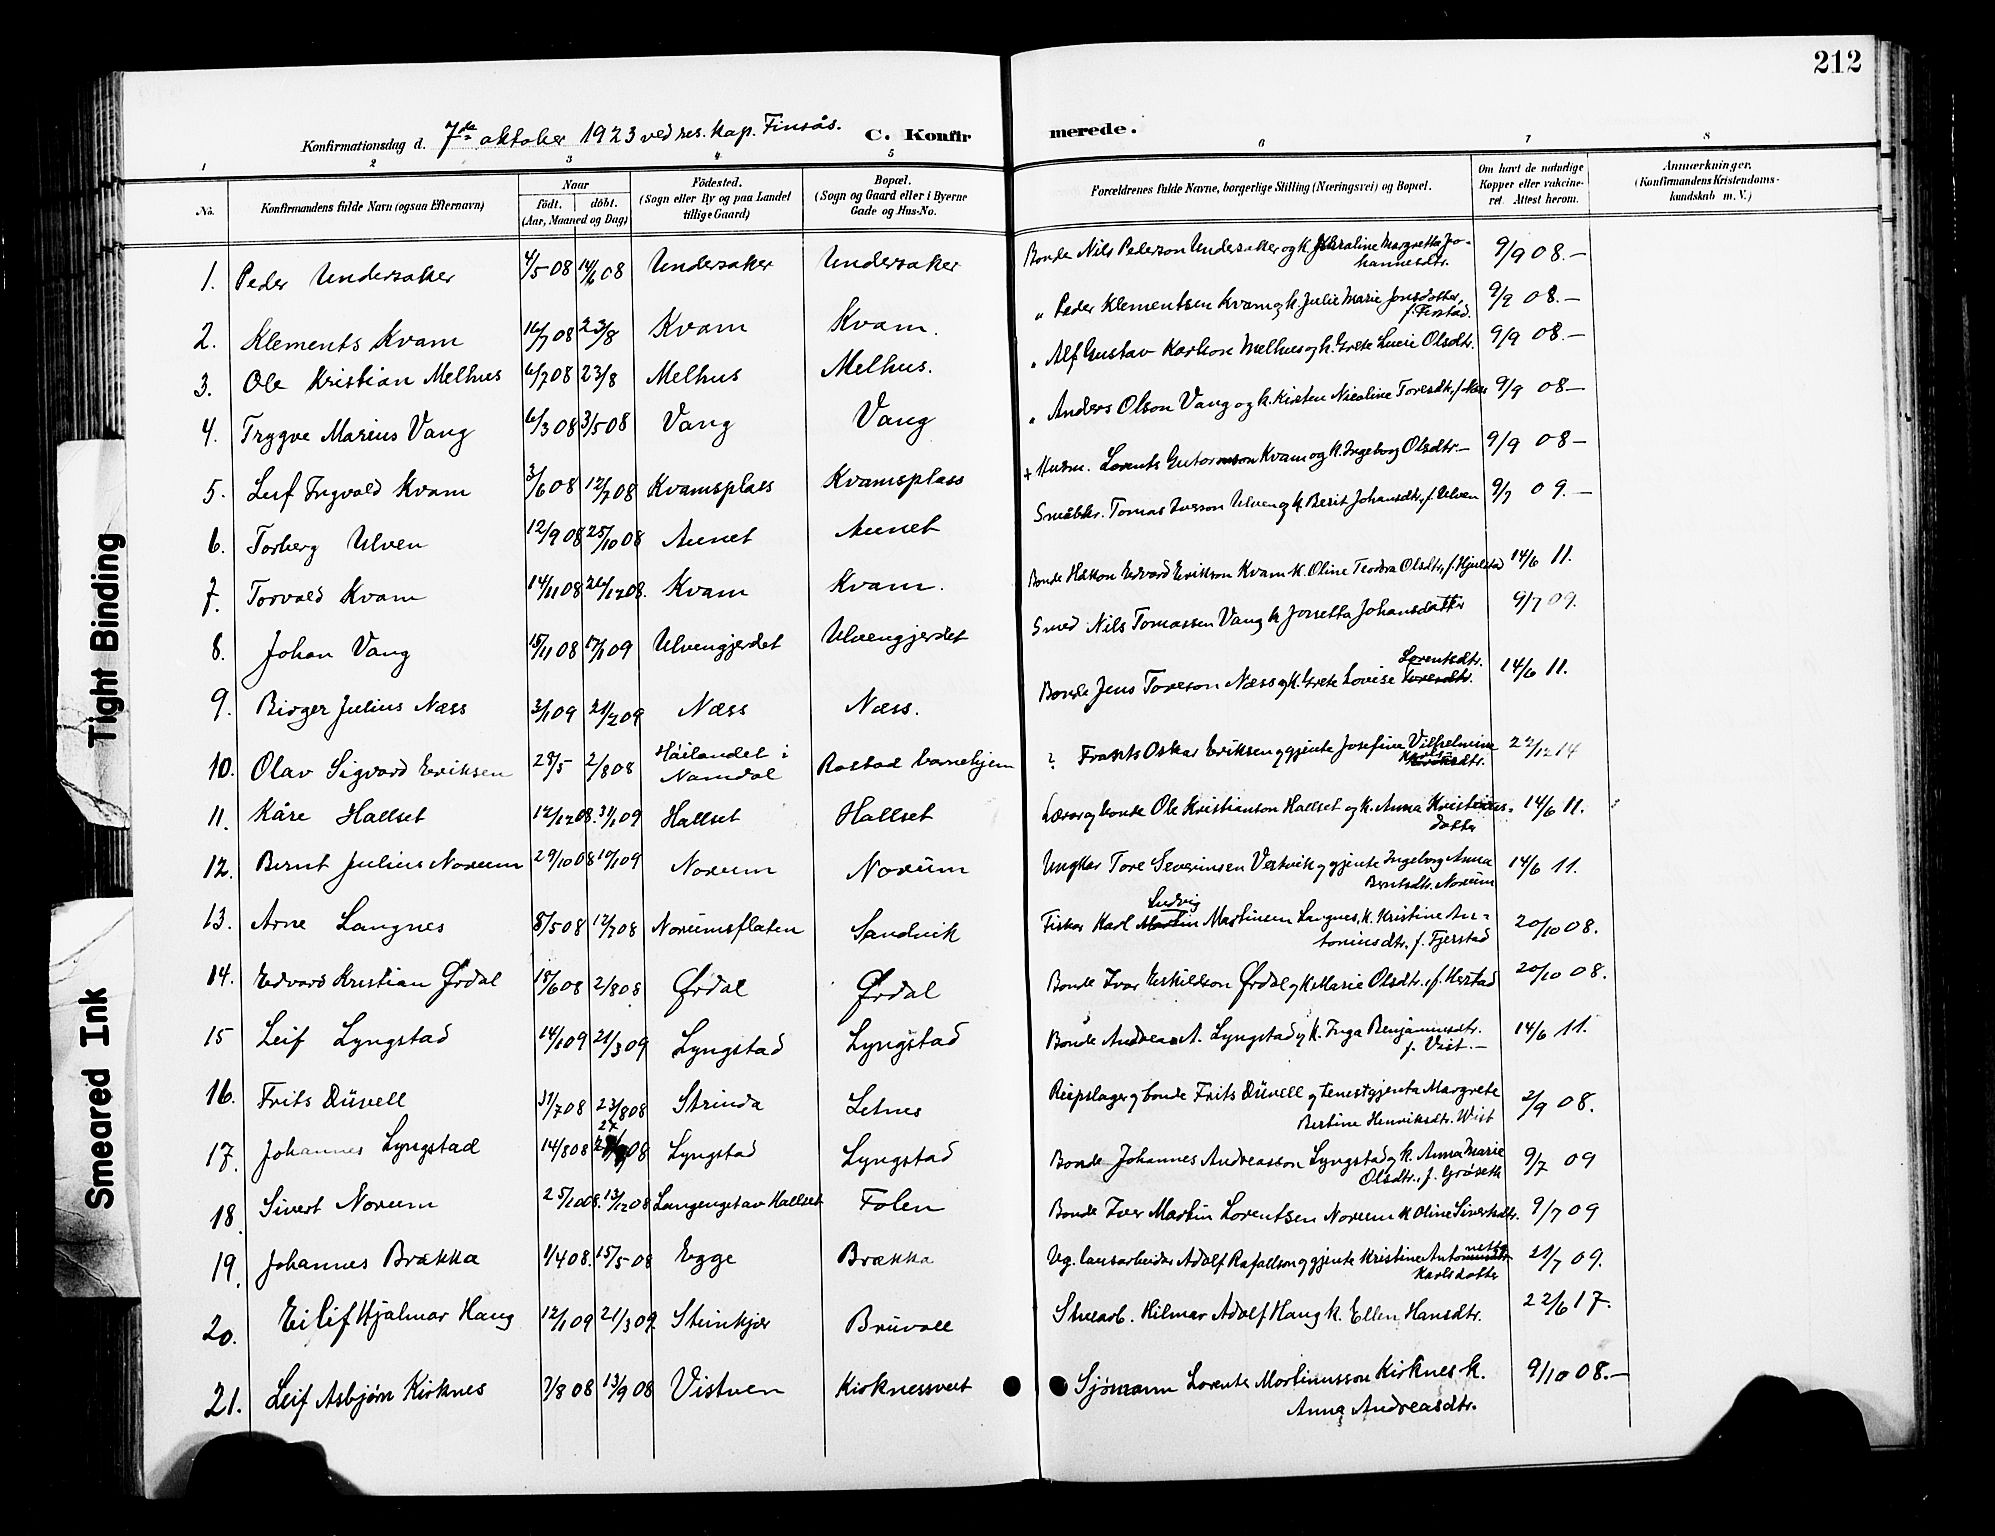 212
Konfirmationsdag d. 7de oktober 1923 ved res. kap. Finsås. C. Konfir merede.
1 2 3 4 5 6 7 8
No. Konfirmandens fulde Navn (ogsaa Efternavn) Naar födt. döbt. (Aar, Maaned og Dag) Födested. (Sogn eller By og paa Landet tillige Gaard) Bopæl. (Sogn og Gaard eller i Byerne Gade og Hus-No. Forældrenes fulde Navne, borgerlige Stilling (Næringsvei) og Bopæl. Om havt de naturlige Kopper eller vakcineret. Attest herom. Anmærkninger. (Konfirmandens Kristendomskundskab m. V.)
1. Peder Undersaker 4/5 08 14/6 08 Undersaker Undersaker Bonde Nils Pederson Undersaker og k. Margretta Johannesdtr. 9/9 08.-
2. Klements Kvam 16/7 08 23/8 Kvam Kvam. " Peder Klementsen Kvam og k. Julie Marie Jonsdotter, f. Fiestad. 9/9 08.-
3. Ole Kristian Melhus 6/7 08 23/8 Melhus Melhus. " Alf Gustav Karlson Melhus og k. Grete Lucie Olsdtr. 9/9 08.-
4. Trygve Marius Vang 6/3 08 3/5 08 Vang Vang " Anders Olson Vang og k. Kirsten Nicoline Toresdtr. f. Næss 9/9 08-
5. Leif Ingvald Kvam 3/6 08 12/7 08 Kvamsplass Kvamsplass + Husm. Lorents Kvam og k. Ingeborg Olsdtr.- 9/9 08-
6. Torberg Ulven 12/9 08 25/10 08 Aunet Aunet Småbkr. Tomas Iverson Ulven og k. Berit Johansdtr. f. Ulven 9/7 09.-
7. Torvald Kvam 14/11 08 26/12 08. Kvam Kvam. Bonde Håkon Edvard Erikson Kvam k. Oline Teodora Olsdtr. f. Hjulstad 14/6 11.
8. Johan Vang 15/11 08 17/1 09 Ulvengjerdet Ulvengjerdet Smed Nils Tomassen Vang k Jonetta Johansdatter 9/7 09.
9. Birger Julius Næss 3/1 09 21/2 09 Næss Næss. Bonde Jens Toreson Næss og k. Grete Lovise Toresdtr. Lorentsdtr. 14/6 11.
10. Olav Sigvard Eriksen 28/5 2/8 08 Høilandet i Namdal Rostad barnehjem ? Frants Oskar Eriksen og gjente Josefine Vilhelmine 22/12 14
11. Kåre Hallset 12/12 08. 31/1 09 Hallset Hallset Lærer og bonde Ole Kristianson Hallset og k. Anna Kristiansdatter 14/6 11.
12. Bernt Julius Norum 29/10 08 10/1 09 Norum Norum Ungkar Tore Severinsen Vestvik og gjente Ingeborg Anna Berntsdtr. Norum 14/6 11.
13. Arne Langnes 8/5 08 12/7 08 Norumsflaten Sandvik Fisker Karl Martin Ludvig Martinsen Langnes, k. Kristine Antoniusdtr. f. Fjerstad 20/10 08.
14. Edvard Kristian Ørdal 18/6 08 2/8 08 Ørdal Ørdal Bonde Ivar Eskildson Ørdal og k Marie Olsdtr. f. Herstad 20/10 08.
15 Leif Lyngstad 14/1 09 21/3 09 Lyngstad Lyngstad Bonde Andreas A. Lyngstad og k. Inga Benjaminsdtr. f. Vist.- 14/6 11.
16. Frits Düvell 31/7 08 23/8 08 Strinda Letnes Reipslager og bonde Frits Düvell og tenestgjenta Margrete Bertine Henriksdtr. Wist 2/9 08.
17. Johannes Lyngstad 14/8 08 08 Lyngstad Lyngstad Bonde Johannes Andreasson Lyngstad og k. Anna Marie Olsdtr., f. Grøseth 9/7 09
18. Sivert Norum 25/10 08. 13/12 08 Langengstav Hallset Folen Bonde Iver Martin Lorentsen Norum k Oline Sivertsdtr. 9/7 09
19. Johannes Brækka 1/4 08. 15/5 08 Egge Brækka Vg. lausarbeider Adolf Rafaelson og gjente Kristine Karlsdatter 21/7 09.
20. Eilif Hjalmar Haug 12/1 09 21/3 09. Steinkjer Brüvoll Hilmar Adolf Haug k. Ellen Hansdtr. 22/6 17.
21. Leif Asbjørn Kirknes 7/8 08 13/9 08 Vistven Kirknessvet Sjømann Lorents Martinusson Kirknes k. Anna Andreasdtr. 9/10 08.-
Tight Binding
Smeared Ink